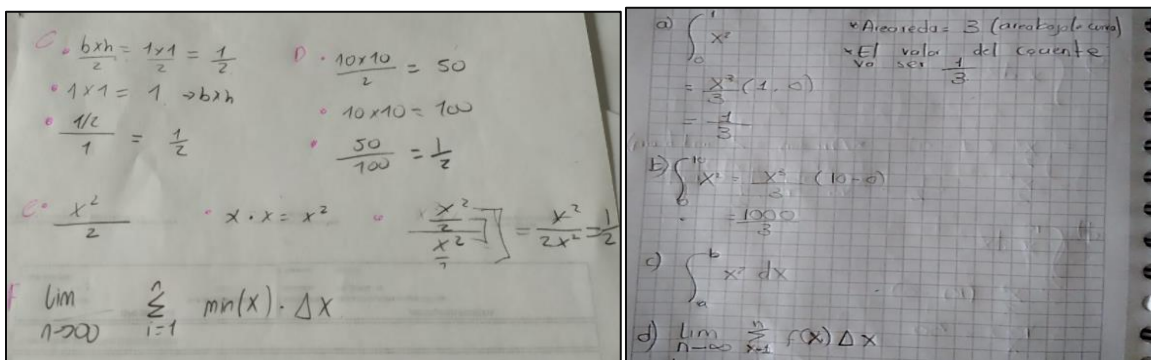 C • bxh/2 = 1x1/2 = 1/2
• 1x1 = 1 → bxh
• 1/2 / 1 = 1/2
D • 10x10/2 = 50
• 10x10 = 100
• 50/100 = 1/2
e • x²/2 • x · x = x² • x²/2 / x²/1 = x²/2x² = 1/2
F lim n→∞ Σ i=1 n mn(x) · Δx
a) ∫ 0 1 x²
= x³/3 (1. 0)
= 1/3
* = 3 (area bajo la curva)
* El valor del cociente
va ser 1/3
b) ∫ 0 10 x² = x³/3 (10-0)
= 1000/3
c) ∫ a b x² dx
d) lim n→∞ Σ x=1 n f(x) Δx